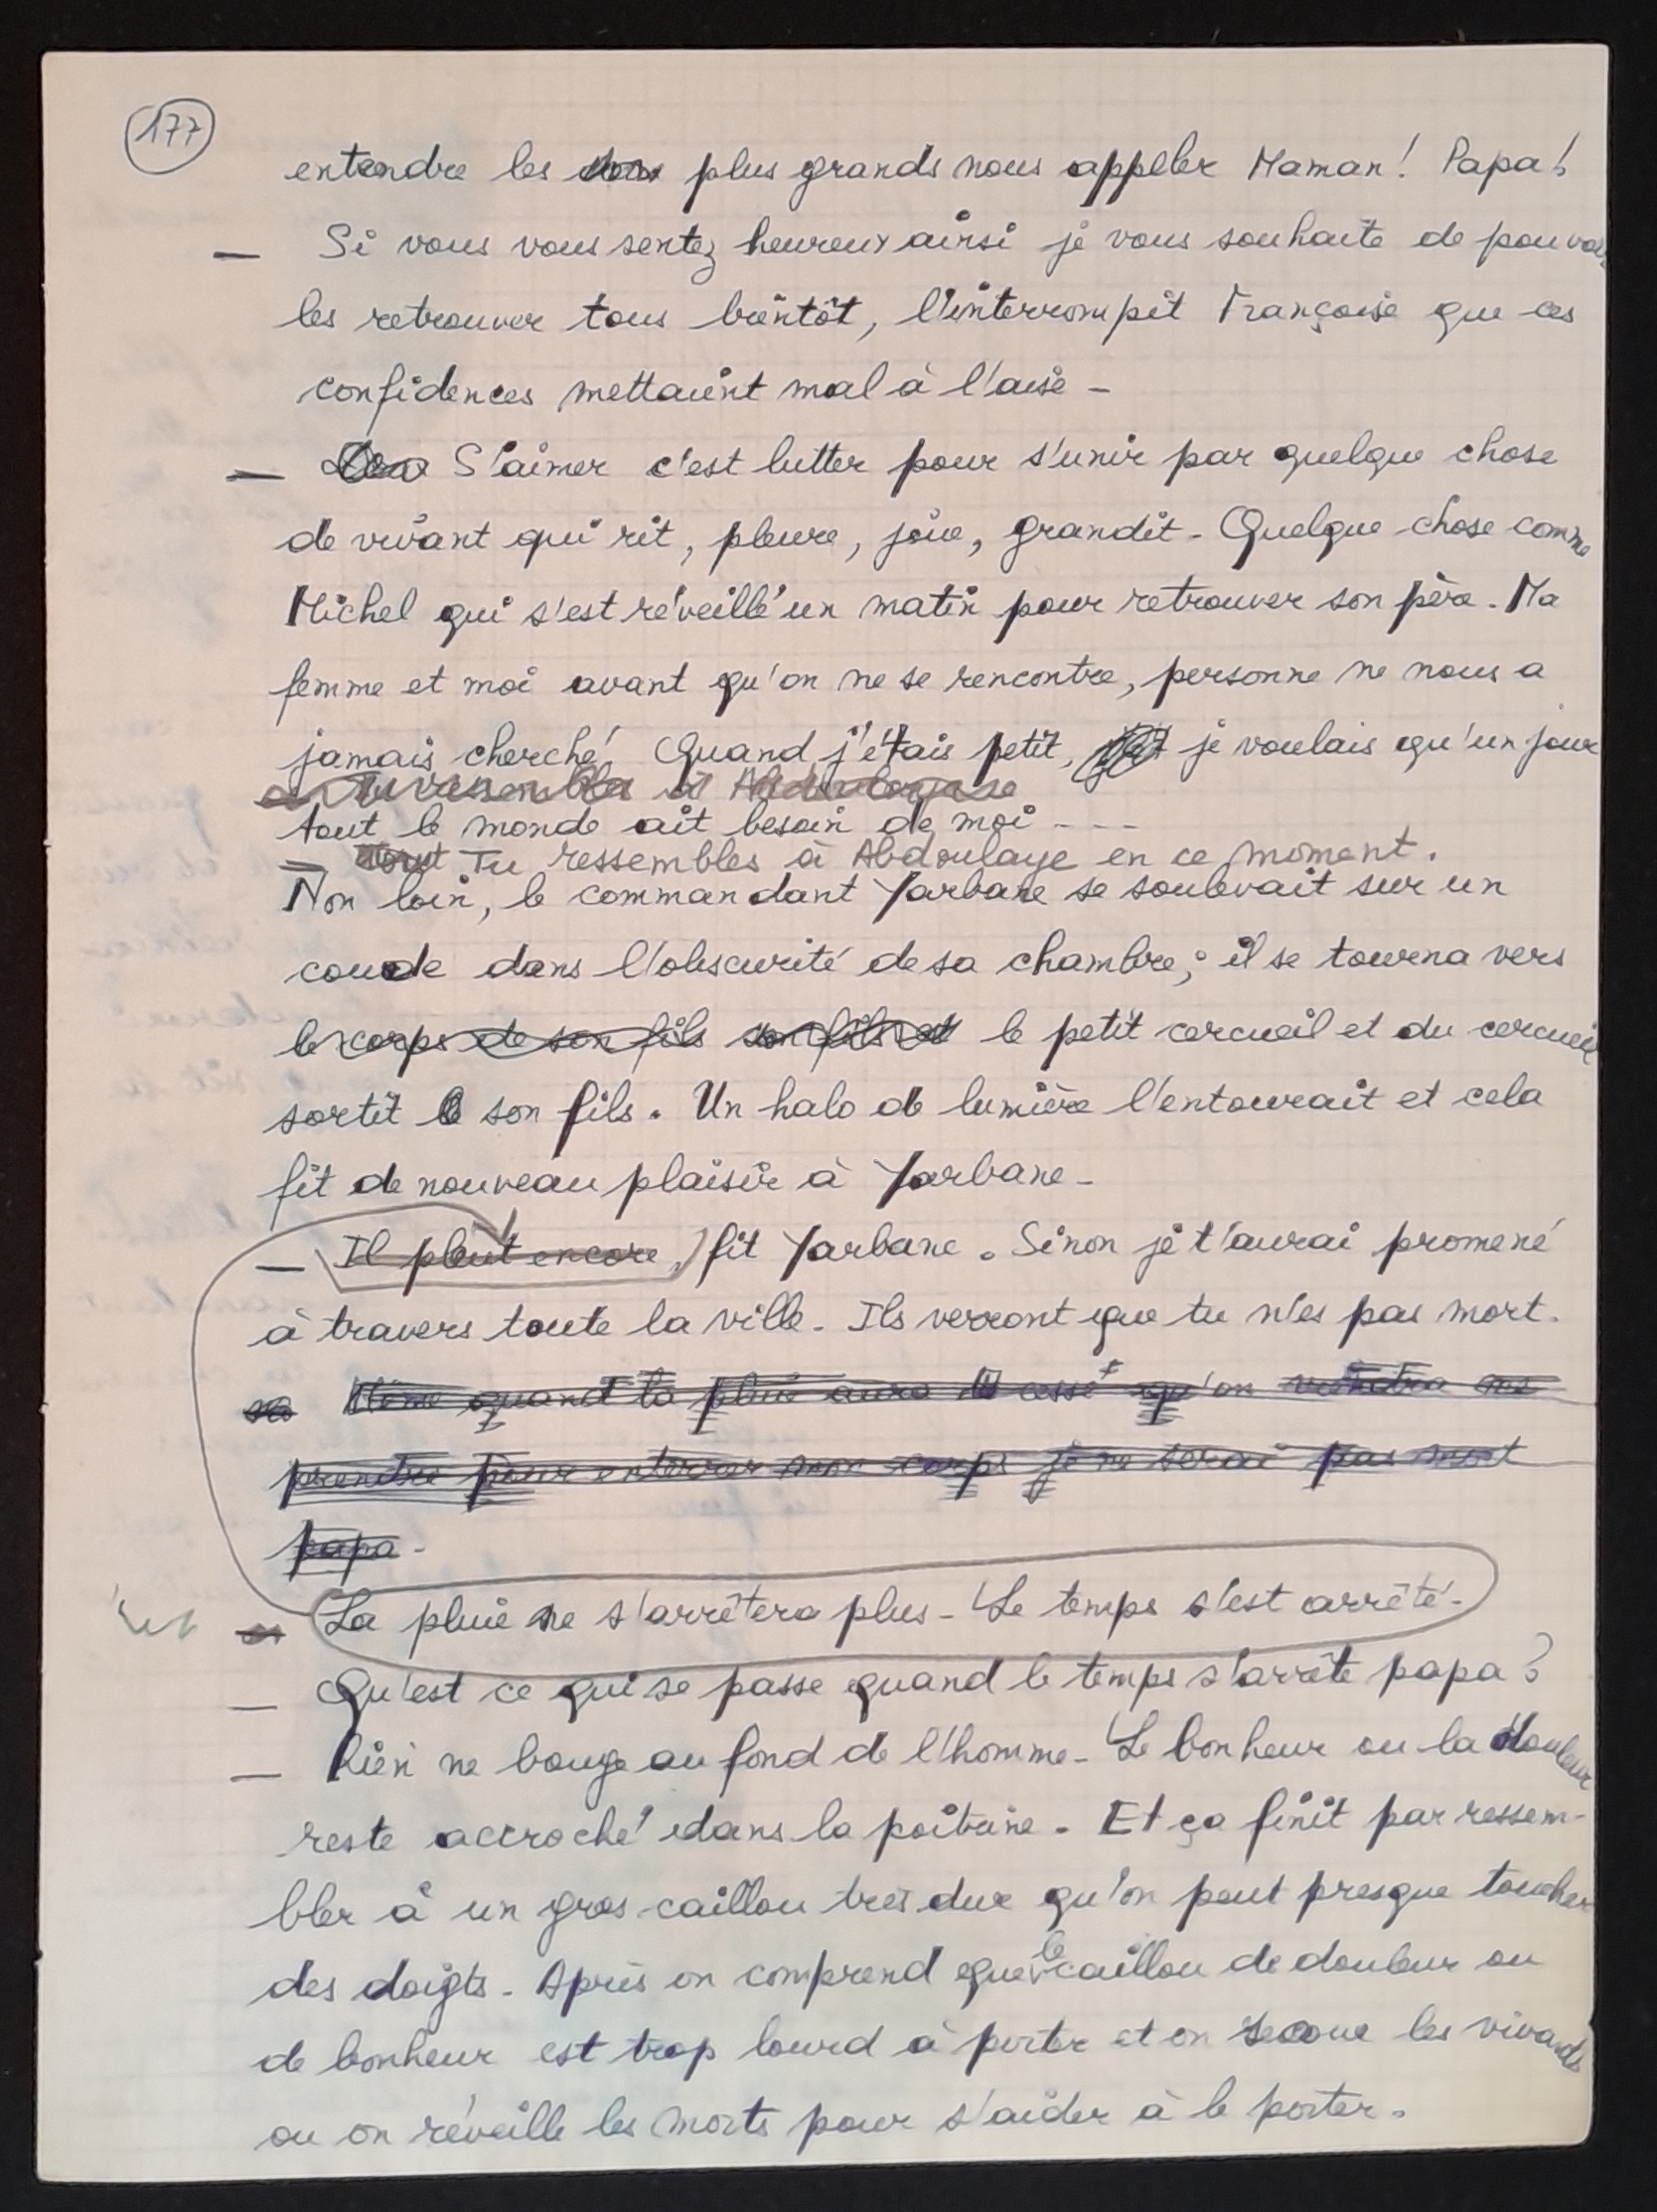 177
entendre les plus grands nous appeler Maman! Papa!
— Si vous vous sentez heureux ainsi je vous souhaite de pouvoir
les retrouver tous bientôt, l'interrompit Françoise que ces
confidences mettaient mal à l'aise -
— S'aimer c'est lutter pour s'unir par quelque chose
de vivant qui rit, pleure, joue, grandit - Quelque chose comme
Michel qui s'est réveillé un matin pour retrouver son père. Ma
femme et moi avant qu'on ne se rencontre, personne ne nous a
jamais cherché Quand j'étais petit, je voulais qu'un jour
Tu ressembles à Abdoulaye
tout le monde ait besoin de moi - - -
— Tu ressembles à Abdoulaye en ce moment.
Non loin, le commandant Yarbane se soulevait sur un
coude dans l'obscurité de sa chambre; il se tourna vers
le corps de son fils son fils et le petit cercueil et du cercueil
sortit le son fils. Un halo de lumière l'entourait et cela
fit de nouveau plaisir à Yarbane -
— Il pleut encore, fit Yarbane. Sinon je t'aurai promené
à travers toute la ville - Ils verront que tu n'es pas mort.
Même quand la pluie aura cessé et qu'on viendra me
prendre pour enterrer mon corps je ne serai pas mort
papa -
La pluie ne s'arrêtera plus - Le temps s'est arrêté -
— Qu'est ce qui se passe quand le temps s'arrête papa?
— Rien ne bouge au fond de l'homme - Le bonheur ou la douleur
reste accroché dans la poitrine - Et ça finit par ressem-
bler à un gros caillou très dur qu'on peut presque toucher
des doigts - Après on comprend que le caillou de douleur ou
de bonheur est trop lourd à porter et on secoue les vivants
ou on réveille les morts pour s'aider à le porter.